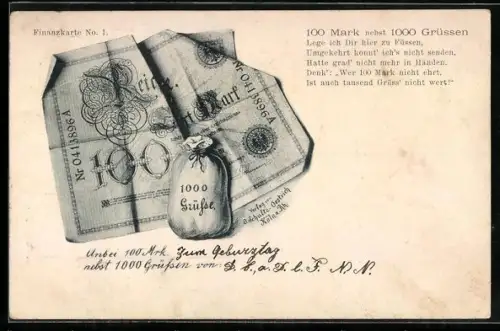 Finanzkarte No. 1.
100 Mark nebst 1000 Grüssen
Lege ich Dir hier zu Füssen,
Umgekehrt konnt' ich's nicht senden,
Hatte grad' nicht mehr in Händen.
Denk': „Wer 100 Mark nicht ehrt,
Ist auch tausend Grüss' nicht wert!"
Nr 0413896A
Mark
Nr 0413896A
100
1000
Grüße.
Verlag von
Köln a. Rh.
Anbei 100 Mrk. Zum Geburtstag
nebst 1000 Grüßen von: N. N.